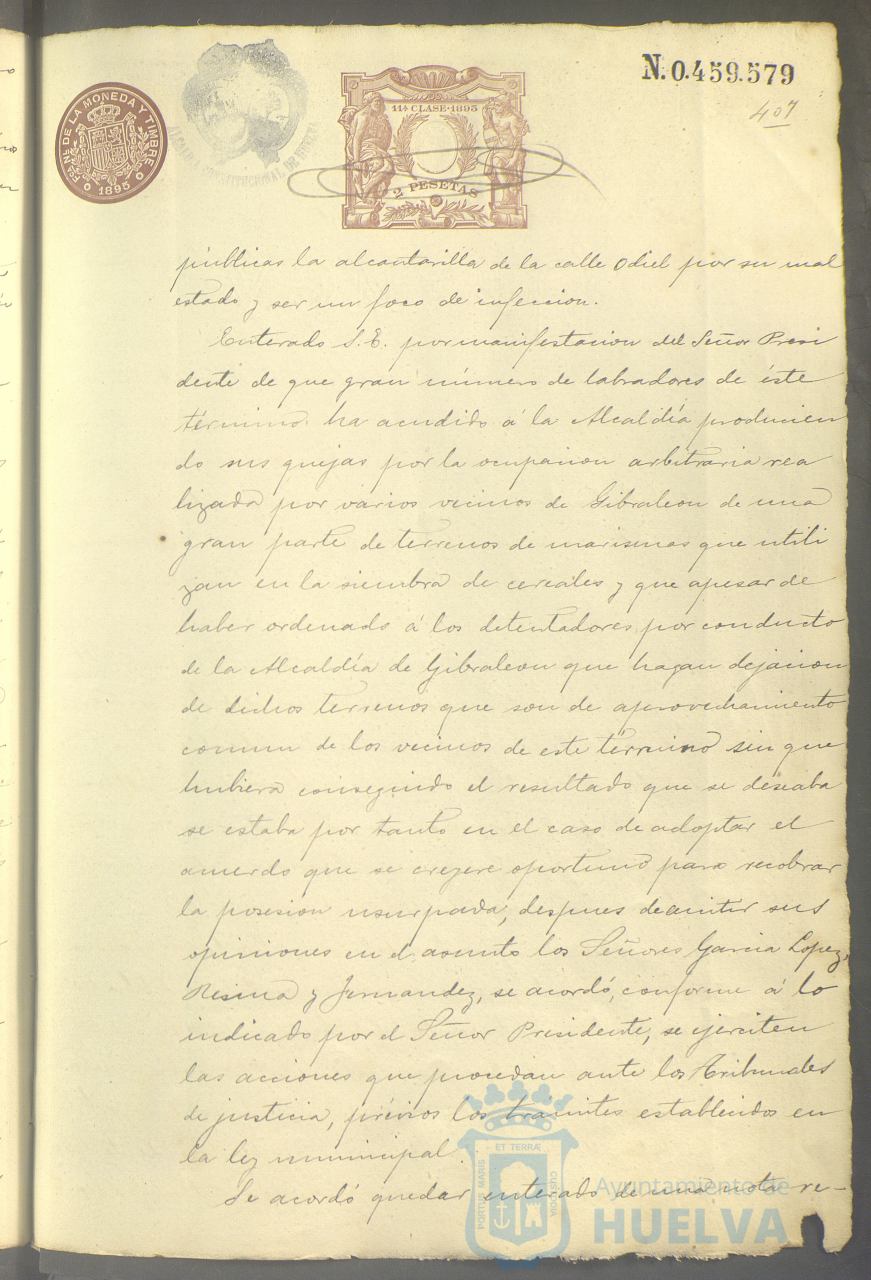 N. 0.459.579
407
FÁB. NAL. DE LA MONEDA Y TIMBRE
1895
CONSTITUCIONAL DE HUELVA
11ª CLASE·1895
2 PESETAS
públicas la alcantarilla de la calle Odiel por su mal
estado y ser un foco de infeccion.
Enterado S.E. por manifestacion del Señor Presi
dente de que gran número de labradores de éste
término ha acudido á la Alcaldía producien
do sus quejas por la ocupacion arbitraria rea
lizada por varios vecinos de Gibraleon de una
gran parte de terrenos de marismas que utili
zan en la siembra de cereales y que apesar de
haber ordenado á los detentadores, por conducto
de la Alcaldía de Gibraleon que hagan dejacion
de dichos terrenos que son de aprovechamiento
comun de los vecinos de este término sin que
hubiera conseguido el resultado que se deseaba
se estaba por tanto en el caso de adoptar el
acuerdo que se creyere oportuno para recobrar
la posesion usurpada, despues de emitir sus
opiniones en el asunto los Señores Garcia Lopez,
Resina y Fernandez, se acordó, conforme á lo
indicado por el Señor Presidente, se ejerciten
las acciones que procedan ante los Tribunales
de justicia, prévios los trámites establecidos en
la ley municipal.
Se acordó quedar enterado de una nota re-
PORTUS MARIS ET TERRÆ CUSTODIA
Ayuntamiento de
HUELVA